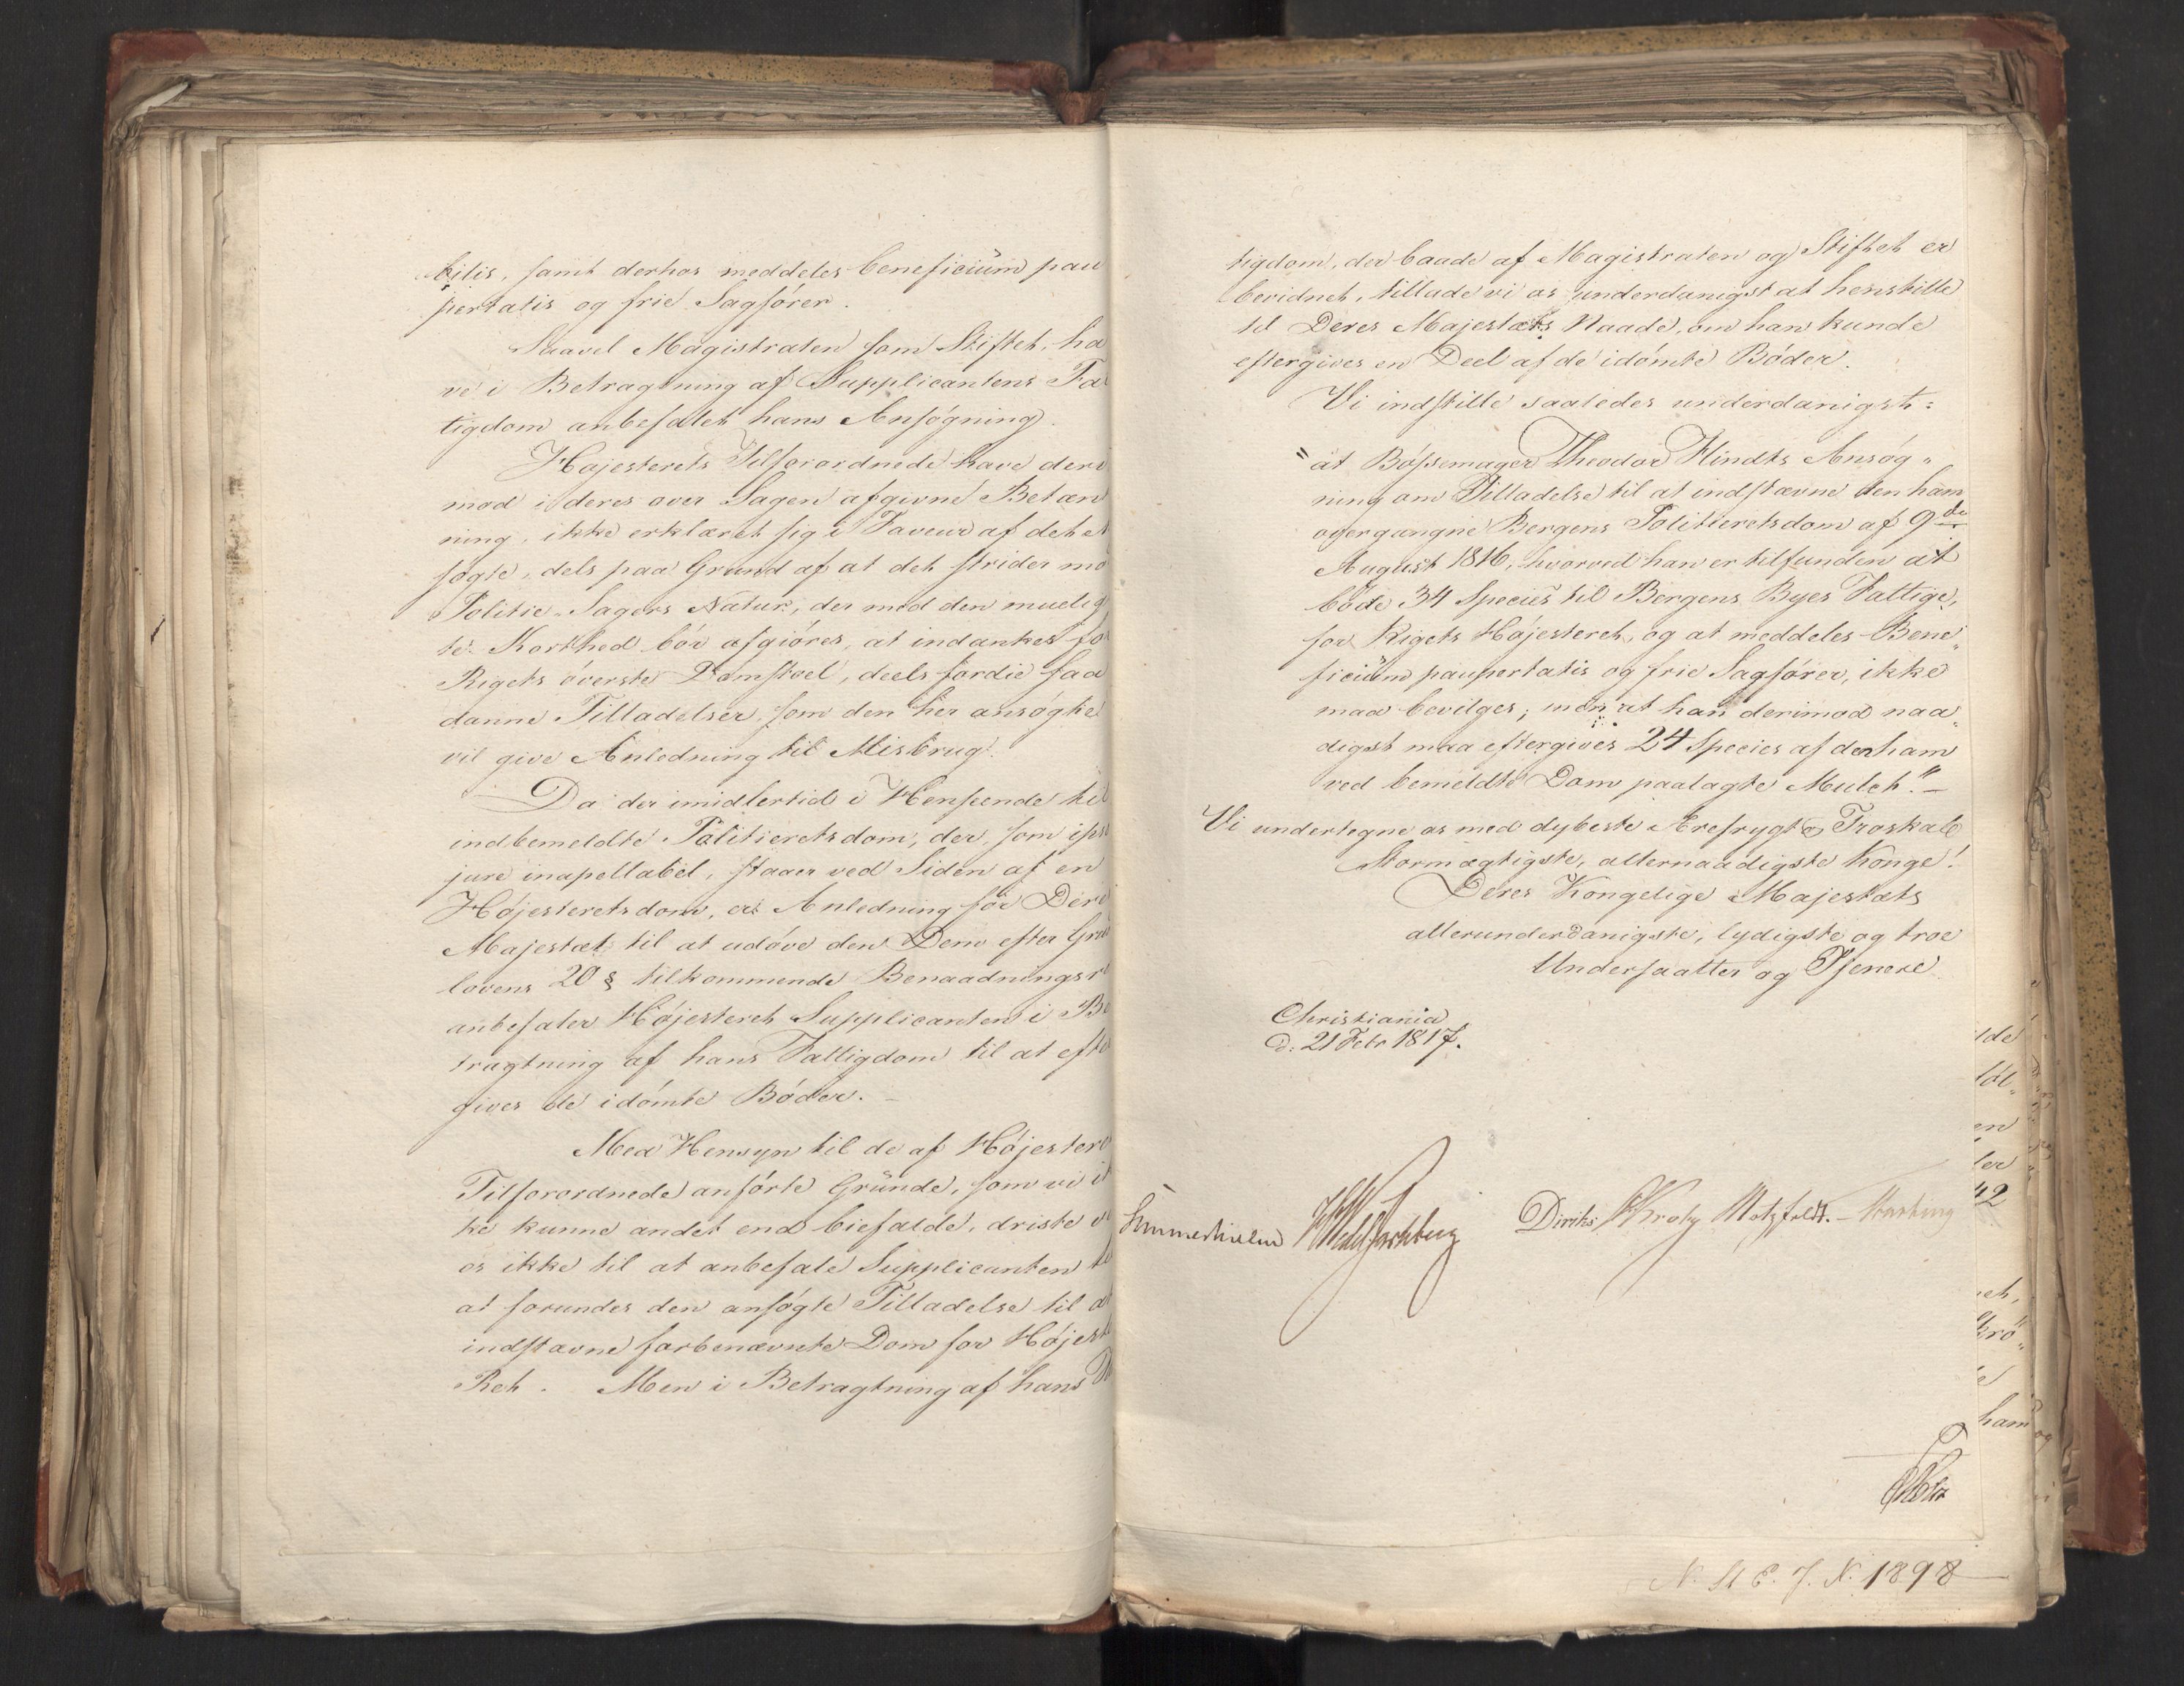 bilis, samt derhos meddeles beneficium pau
pertatis og frie Sagfører.
Saavel Magistraten som Stiftet, ha
ve i Betragtning af Supplicantens Fa
tigdom anbefalet hans Ansøgning.
Højesterets Tilforordnede have deri
mod i deres over Sagen afgivne Betæn
ning, ikke erklæret sig i Faveur af det
søgte, dels paa Grund af at det strider mo
Politie-Sagers Natur, der med den muelig
te Korthed bør afgiøres, at indankes fo
Rigets øverste Domstoel, deels fordie saa
danne Tilladelser, som den her ansøgte
vil give Anledning til Misbrug.
Da der imidlertid i Henseende til
indbemeldte Politieretsdom, der, som ipso
jure inapellabel, staaer ved Siden af en
Højesteretsdom, er Anledning for Dere
Majestæt til at udøve den Dem efter Gru
lovens 20 § tilkommende Benaadningsre
anbefaler Højesteret Supplicanten i Be
tragtning af hans Fattigdom til at efte
gives de idømte Bøder. –
Med Hensyn til de af Højestere
Tilforordnede anførte Grunde, som vi ik
ke kunne andet end biefalde, driste vi
os ikke til at anbefale Supplicanten til
at forundes den ansøgte Tilladelse til at
indstævne forbenævnte Dom for Højeste
Ret. Men i Betragtning af hans
tigdom, der baade af Magistraten og Stiftet er
bevidnet, tillade vi os underdanigst at henstille
til Deres Majestæts Naade, om han kunde
eftergives en Deel af de idømte Bøder.
Vi indstille saaledes underdanigst:
"at Bøssemager Theodor Flindts Ansøg"
ning om Tilladelse til at indstævne den ham
overgangne Bergens Politieretsdom af 9de
August 1816, hvorved han er tilfunden at
bøde 34 Species til Bergens Byes Fattige,
for Rigets Højesteret, og at meddeles Bene"
ficium paupertatis og frie Sagfører, ikke
maa bevilges; men at han derimod naa"
digst maa eftergives 24 Species af den ham
ved bemeldte Dom paalagte Mulct." –
Vi undertegne os med dybeste Ærefrygt og Troskab
Stormægtigste, allernaadigste Konge!
Deres Kongelige Majestæts
allerunderdanigste, lydigste og troe
Undersaatter og Tjenere
Christiania
d: 21 Febr 1817.
Sommerhielm HWedelJarlsberg Diriks Krohg Motzfeldt.
ide
en
ler
42
ham
og
N. St. E. J. N. 1898